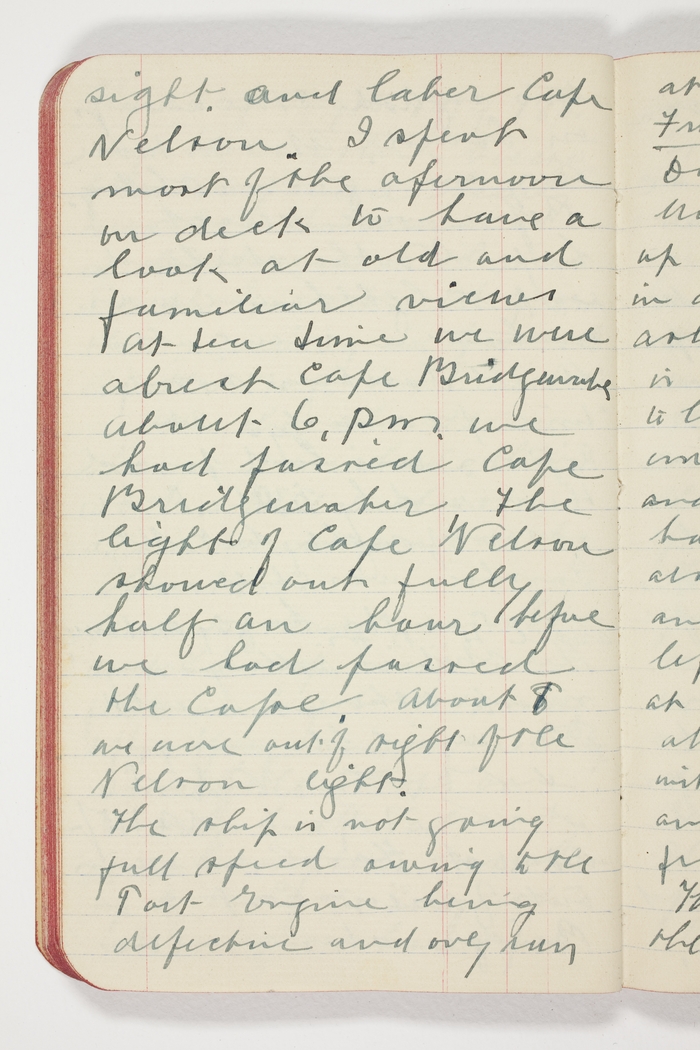 sight. and later Cape
Nelson. I spent
most of the afernoon
on deck to have a
look at old and
familiar views
at tea time we were
abrest Cape Bridgewater
about 6, pm. we
had passed Cape
Bridgewater, The
light of Cape Nelson
showed out fully
half an hour before
we had passed
the Cape. About 8
we were out of sight of the
Nelson light.
The ship is not going
full speed owing to the
Port Engine being
defective and only run
at
up
in
is
and
at
the